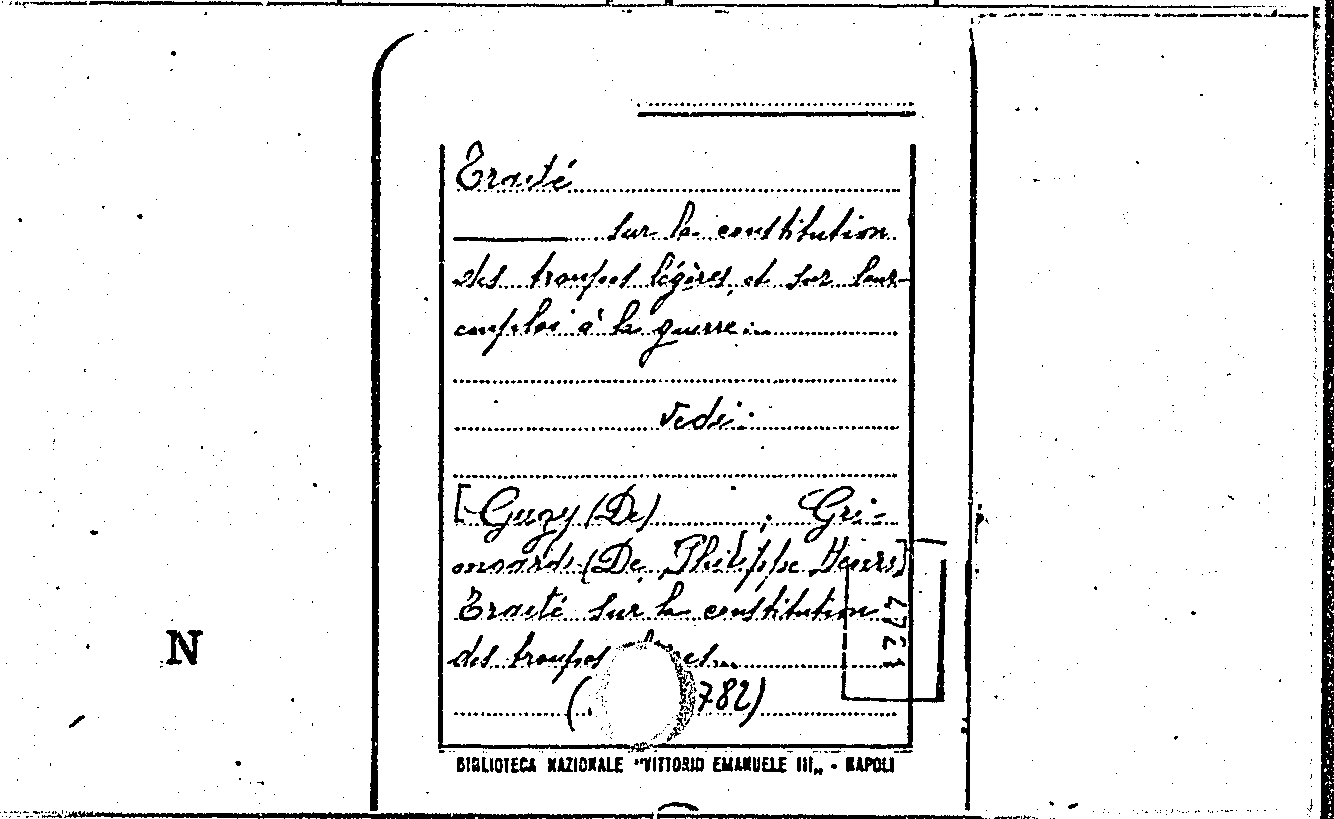 Traité
sur la constitution
des troupes légères, et sur leur
emploi à la guerre...
vedi:
[Gugy (De) ; Gri-
moard (De, Philippe Henri)]
Traité sur la constitution
des troupes
( 782)
N
BIBLIOTECA NAZIONALE "VITTORIO EMANUELE III„ - NAPOLI